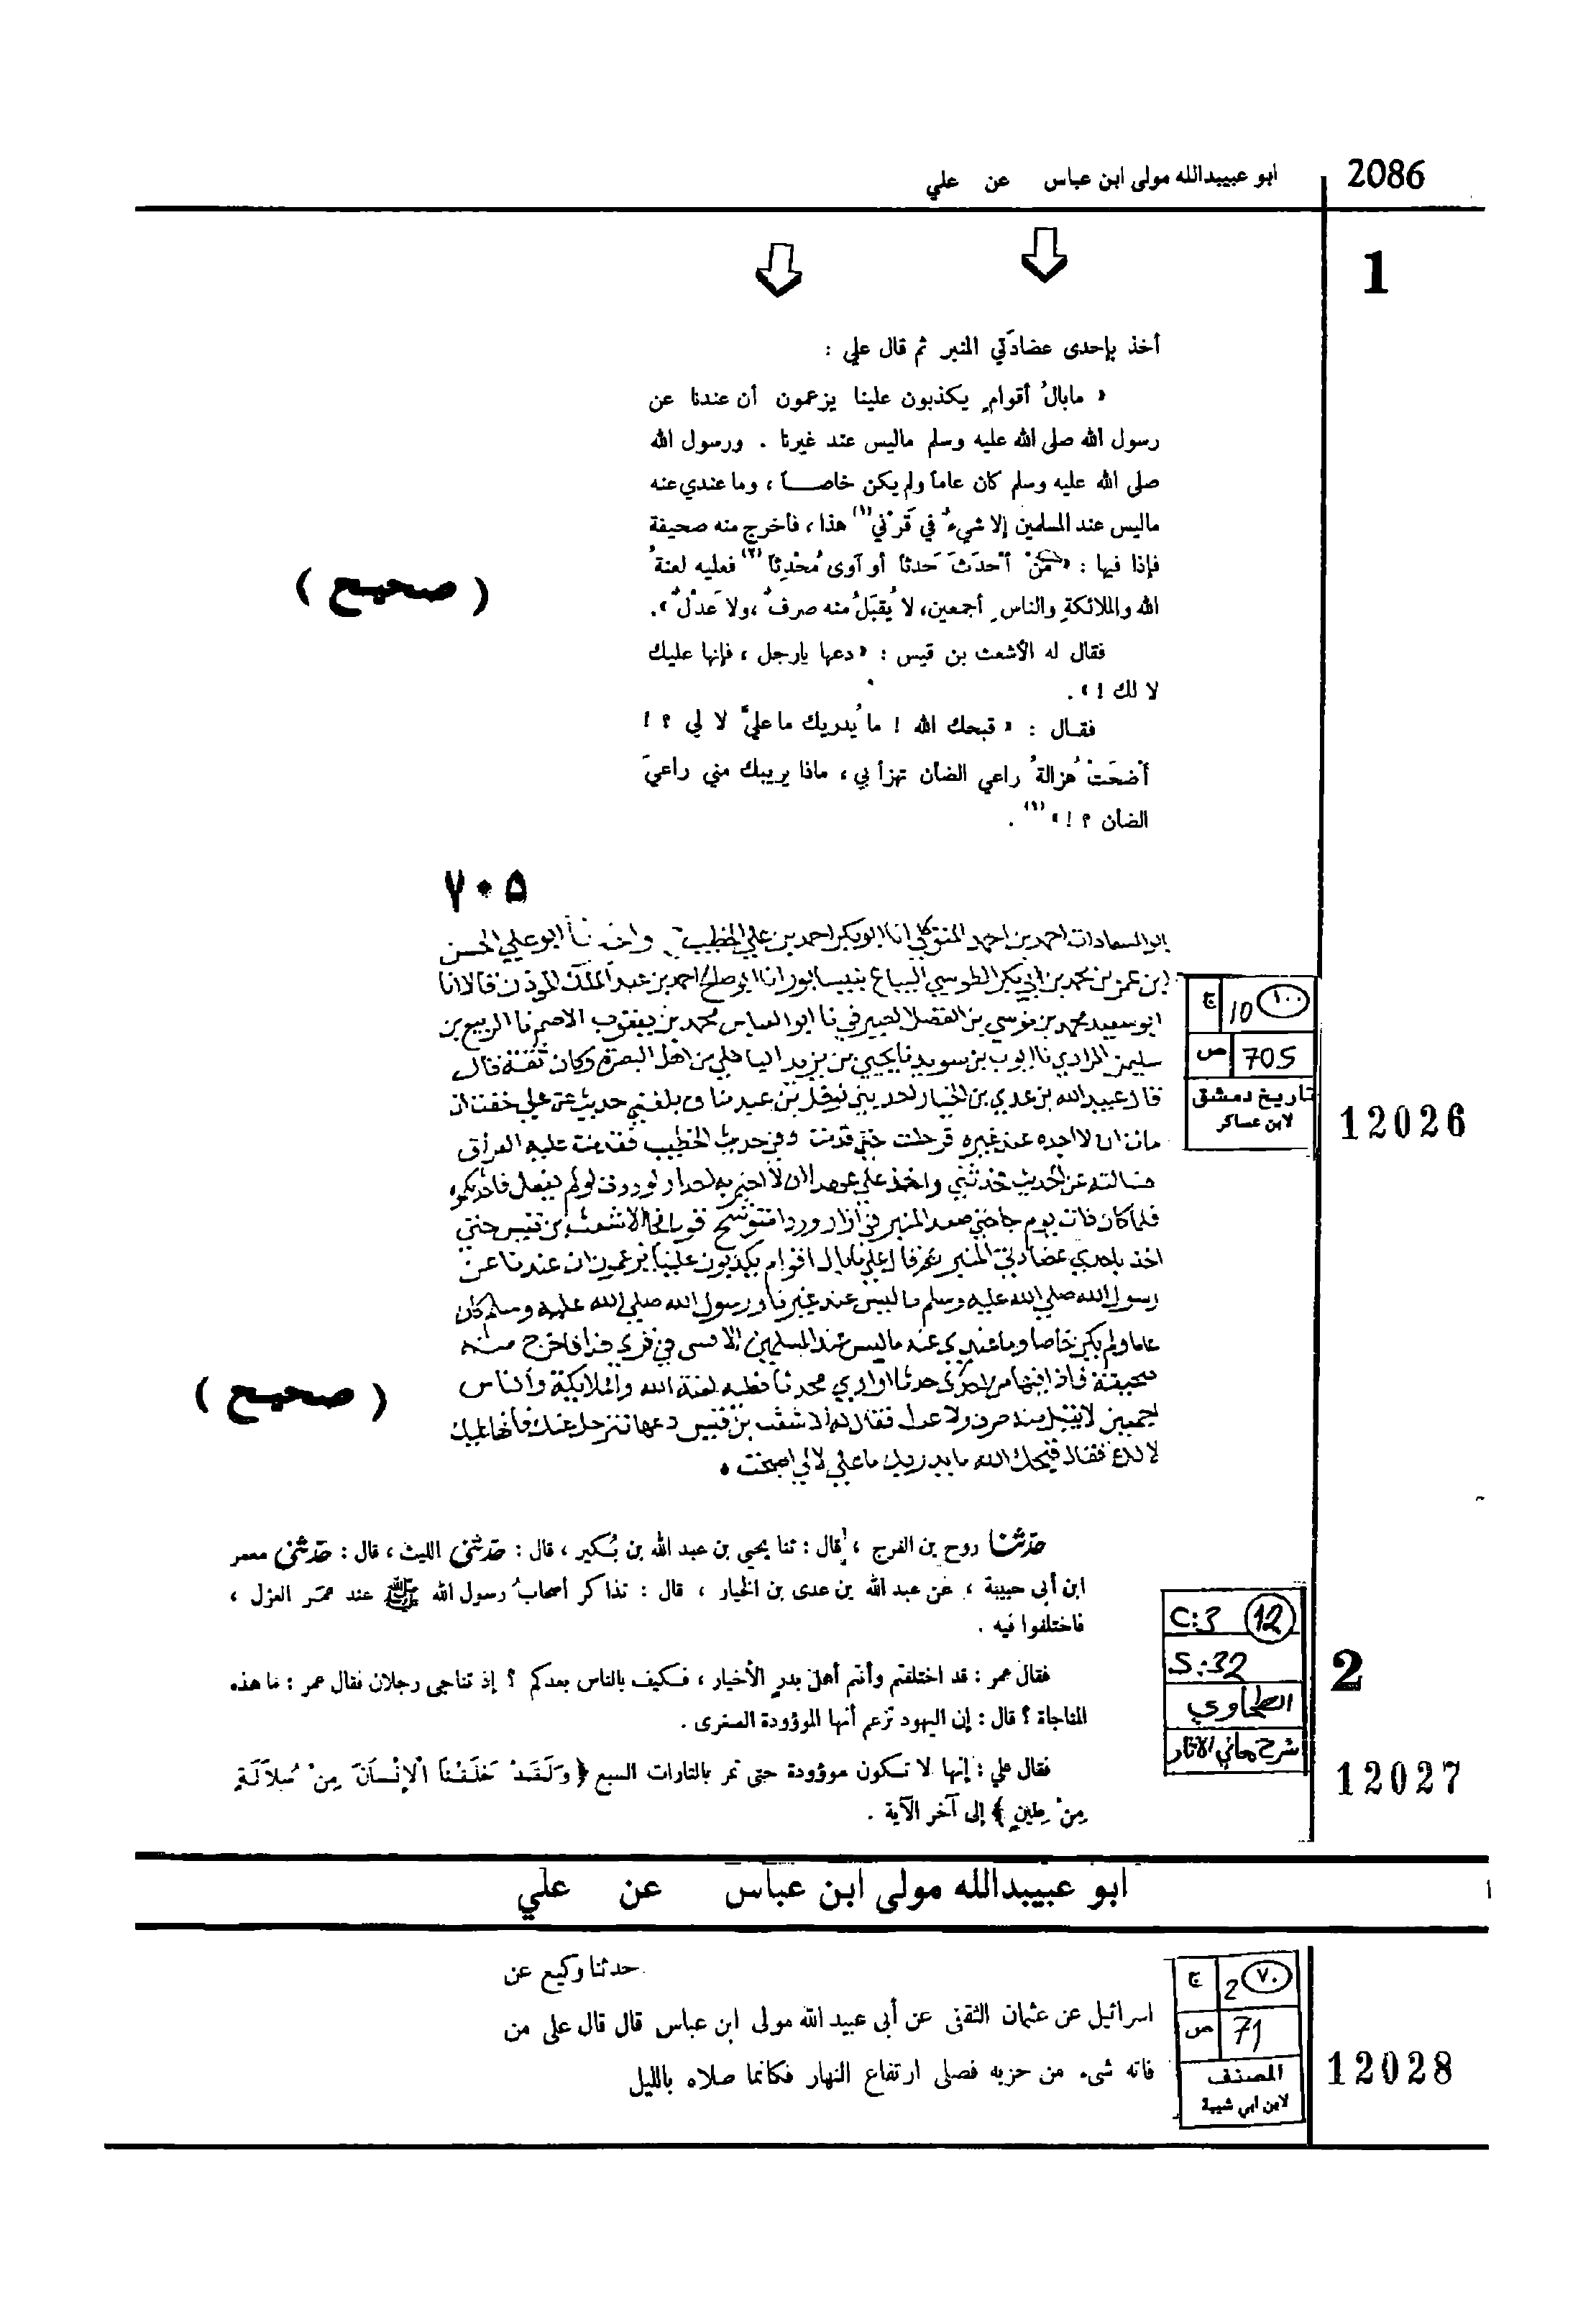 2086
ابو عبيدالله مولى ابن عباس عن علي
1
أخذ بإحدى عضادَتي المنبر ثم قال علي :
« مابالُ أقوامٍ يكذبون علينا يزعمون أن عندنا عن
رسول الله صلى الله عليه وسلم ماليس عند غيرنا . ورسول الله
صلى الله عليه وسلم كان عاماً ولم يكن خاصـــاً ، وما عندي عنه
ماليس عند المسلمين إلا شيءٌ في قَرْني(١) هذا ، فأخرج منه صحيفة
فإذا فيها : « مَنْ أحْدَثَ حَدثاً أو آوى مُحْدِثاً(٢) فعليه لعنةُ
الله والملائكةِ والناسِ أجمعين، لا يُقبَلُ منه صرفٌ ،ولا عَدْلٌ ».
( صحيح )
فقال له الأشعث بن قيس : « دعها يارجل ، فإنها عليك
لا لك ! » .
فقـال : « قبحك الله ! ما يُدريك ما عليَّ لا لي ؟ !
أضْحَتْ هُزالةُ راعي الضأن تهزأ بي ، ماذا يريبك مني راعيَ
الضأن ؟ ! » (١) .
٧٠٥
ابو السعادات احمد بن احمد المتوكلي انا ابو بكر احمد بن علي الخطيب واخبرنا ابو علي الحسن
ابن عمر بن محمد بن ابي بكر الطوسي البياع بنيسابور انا ابو صالح احمد بن عبد الملك المؤذن قالا انا
ابو سعيد محمد بن موسي بن الفضل الصيرفي نا ابو العباس محمد بن يعقوب الاصم نا الربيع بن
سليمن المرادي نا ايوب بن سويد نا يحيي بن يزيد الباهلي من اهل البصرة وكان ثقة قال
قال عبيد الله بن عدي بن الخيار بلغني حديث عن علي خفت ان
مات ان لا اجده عند غيره فرحلت حتي قدمت وفي حديث الخطيب فقدمت عليه العراق
فسالته عن الحديث فحدثني واخذ علي عهدا ان لا اخبر به احدا
فلما كان ذات يوم جا حتي صعد المنبر في ازار وردا متوشح قوسا فجا الاشعث بن قيس حتي
اخذ باحدي عضادتي المنبر ثم قال علي ما بال اقوام يكذبون علينا يزعمون ان عندنا عن
رسول الله صلي الله عليه وسلم ما ليس عند غيرنا ورسول الله صلي الله عليه وسلم كان
عاما ولم يكن خاصا وما عندي عنه ما ليس عند المسلمين الا شي في قرني هذا فاخرج منه
صحيفة فاذا فيها من احدث حدثا او اوي محدثا فعليه لعنة الله والملايكة والناس
( صحيح )
اجمعين لا يقبل منه صرف ولا عدل فقال له الاشعث بن قيس دعها فانها عليك
لا لك فقال قبحك الله ما يدريك ما علي لا لي اصبحت
ج 10 ١٠٠
ص 705
تاريخ دمشق
لابن عساكر
12026
حدثنا روح بن الفرج ، قال : ثنا يحيى بن عبد الله بن بُكير ، قال : حدثنى الليث ، قال : حدثنى معمر
ابن أبى حبيبة ، عن عبد الله بن عدى بن الخيار ، قال : تذاكر أصحابُ رسول الله ﷺ عند عمَر العزل ،
فاختلفوا فيه .
فقال عمر : قد اختلفتم وأنتم أهل بدرٍ الأخيار ، فـكيف بالناس بعدكم ؟ إذ تناجى رجلان فقال عمر : ما هذه
المناجاة ؟ قال : إن اليهود تزعم أنها الموؤودة الصغرى .
فقال علي : إنها لا تـكون موؤودة حتى تمر بالتارات السبع ﴿ وَلَقَدْ خَلَقْنَا الْإِنْسَانَ مِنْ سُلَالَةٍ
مِنْ طِينٍ ﴾ إلى آخر الآية .
C:3 12
S:32
الطحاوي
شرح معاني الاثار
2
12027
ابو عبيدالله مولى ابن عباس عن علي
1
حدثنا وكيع عن
اسرائيل عن عثمان الثقفى عن أبى عبيد الله مولى ابن عباس قال قال على من
فاته شىء من حزبه فصلى ارتفاع النهار فكانما صلاه بالليل
ج 2 ٧٠
ص 71
المصنف
لابن ابي شيبة
12028